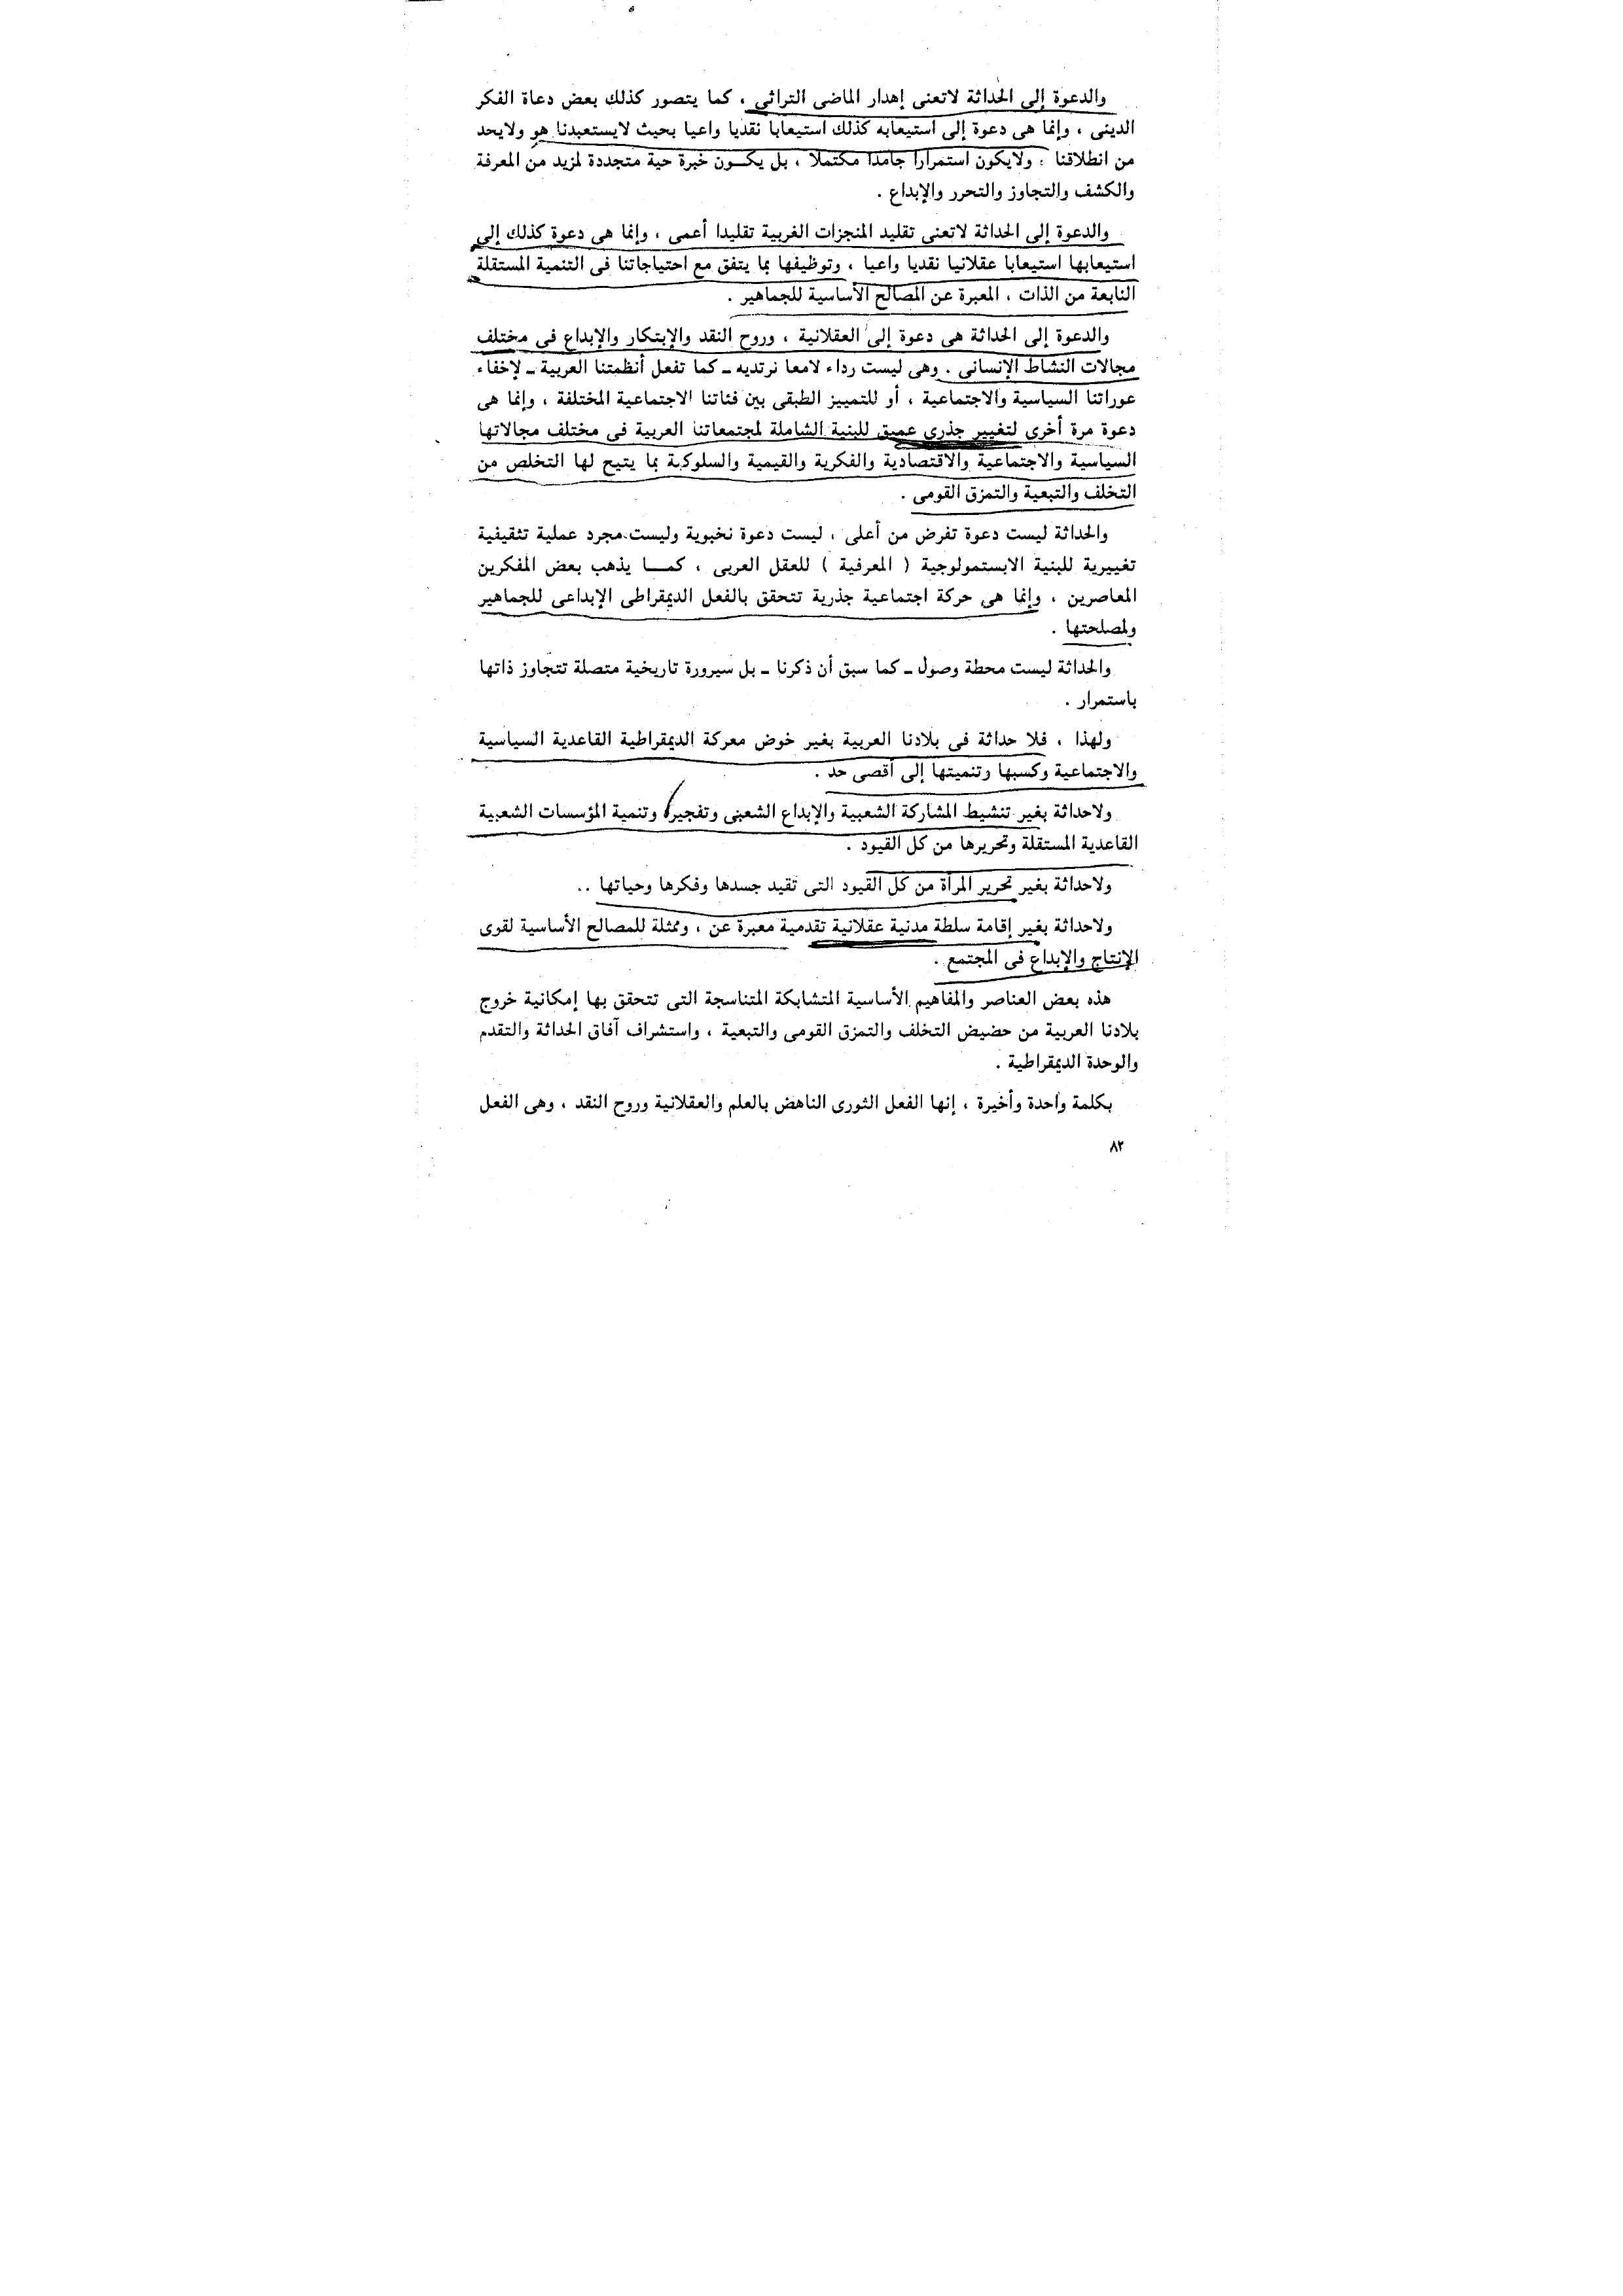 والدعوة إلى الحداثة لاتعنى إهدار الماضى التراثى ، كما يتصور كذلك بعض دعاة الفكر
الدينى ، وإنما هى دعوة إلى استيعابه كذلك استيعابا نقديا واعيا بحيث لايستعبدنا هو ولايحد
من انطلاقنا ، ولايكون استمرارا جامدا مكتملا ، بل يكـــون خبرة حية متجددة لمزيد من المعرفة
والكشف والتجاوز والتحرر والإبداع .
والدعوة إلى الحداثة لاتعنى تقليد المنجزات الغربية تقليدا أعمى ، وإنما هى دعوة كذلك إلى
استيعابها استيعابا عقلانيا نقديا واعيا ، وتوظيفها بما يتفق مع احتياجاتنا فى التنمية المستقلة
النابعة من الذات ، المعبرة عن المصالح الأساسية للجماهير .
والدعوة إلى الحداثة هى دعوة إلى العقلانية ، وروح النقد والإبتكار والإبداع فى مختلف
مجالات النشاط الإنسانى . وهى ليست رداء لامعا نرتديه ـ كما تفعل أنظمتنا العربية ـ لإخفاء
عوراتنا السياسية والاجتماعية ، أو للتمييز الطبقى بين فئاتنا الاجتماعية المختلفة ، وإنما هى
دعوة مرة أخرى لتغيير جذرى عميق للبنية الشاملة لمجتمعاتنا العربية فى مختلف مجالاتها
السياسية والاجتماعية والاقتصادية والفكرية والقيمية والسلوكية بما يتيح لها التخلص من
التخلف والتبعية والتمزق القومى .
والحداثة ليست دعوة تفرض من أعلى ، ليست دعوة نخبوية وليست مجرد عملية تثقيفية
تغييرية للبنية الابستمولوجية ( المعرفية ) للعقل العربى ، كمـــا يذهب بعض المفكرين
المعاصرين ، وإنما هى حركة اجتماعية جذرية تتحقق بالفعل الديمقراطى الإبداعى للجماهير
ولمصلحتها .
والحداثة ليست محطة وصول ـ كما سبق أن ذكرنا ـ بل سيرورة تاريخية متصلة تتجاوز ذاتها
باستمرار .
ولهذا ، فلا حداثة فى بلادنا العربية بغير خوض معركة الديمقراطية القاعدية السياسية
والاجتماعية وكسبها وتنميتها إلى أقصى حد .
ولاحداثة بغير تنشيط المشاركة الشعبية والإبداع الشعبى وتفجيره وتنمية المؤسسات الشعبية
القاعدية المستقلة وتحريرها من كل القيود .
ولاحداثة بغير تحرير المرأة من كل القيود التى تقيد جسدها وفكرها وحياتها ..
ولاحداثة بغير إقامة سلطة مدنية عقلانية تقدمية معبرة عن ، وممثلة للمصالح الأساسية لقوى
الإنتاج والإبداع فى المجتمع .
هذه بعض العناصر والمفاهيم الأساسية المتشابكة المتناسجة التى تتحقق بها إمكانية خروج
بلادنا العربية من حضيض التخلف والتمزق القومى والتبعية ، واستشراف آفاق الحداثة والتقدم
والوحدة الديمقراطية .
بكلمة واحدة وأخيرة ، إنها الفعل الثورى الناهض بالعلم والعقلانية وروح النقد ، وهى الفعل
٨٢